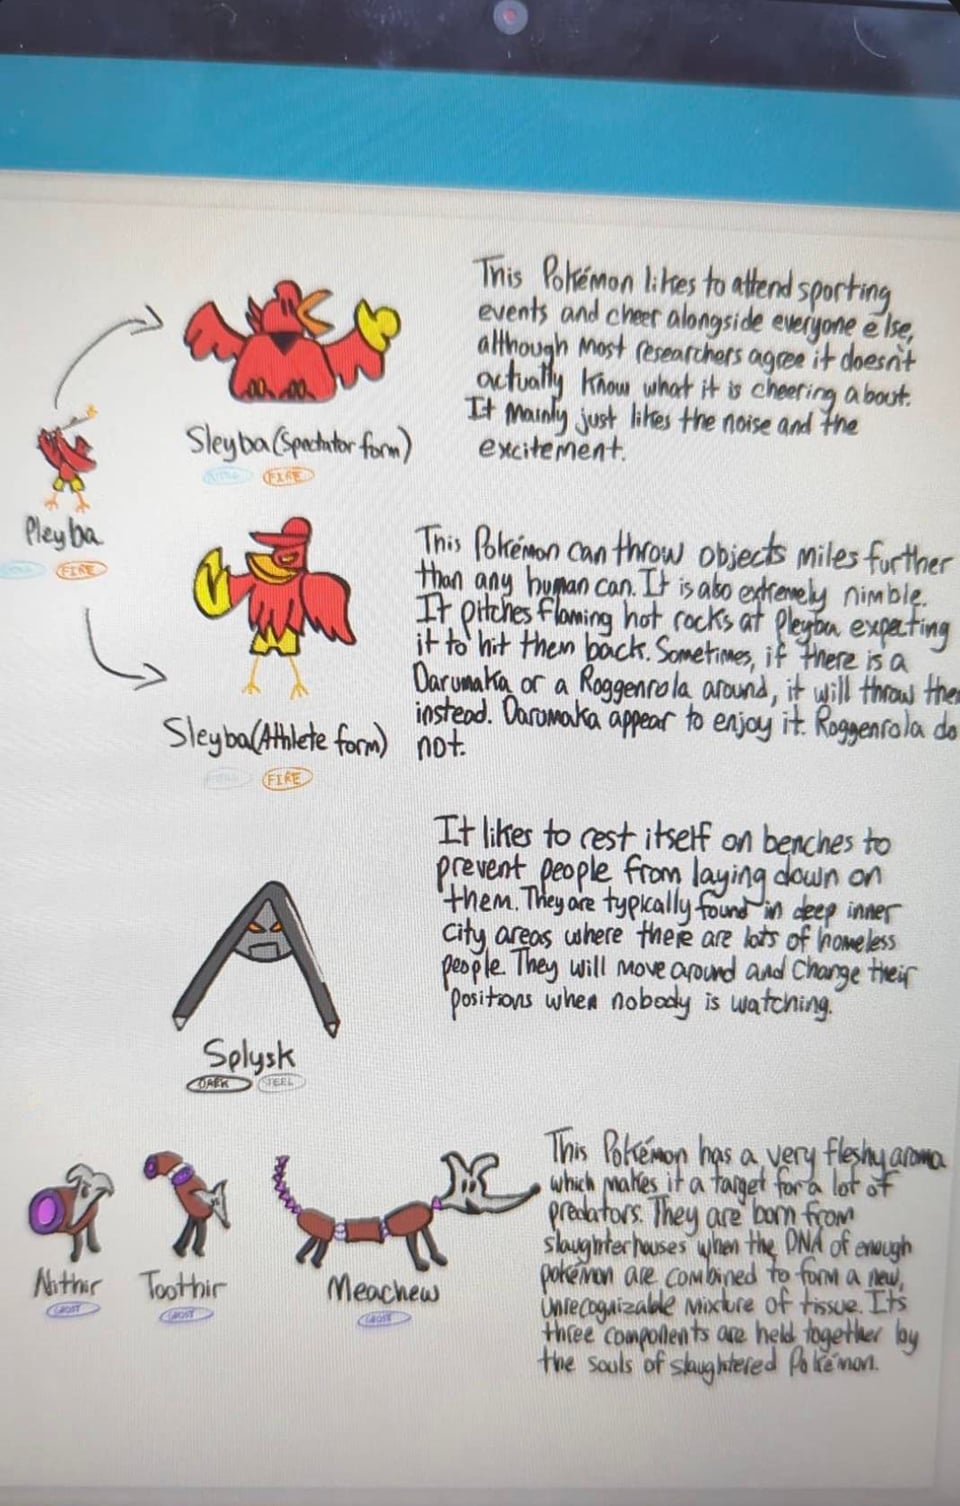 This Pokémon likes to attend sporting
events and cheer alongside everyone else,
although most researchers agree it doesn't
actually know what it is cheering about.
It mainly just likes the noise and the
excitement.
Sleyba (Spectator form)
FIRE
Pleyba
FIRE
This Pokémon can throw objects miles further
than any human can. It is also extremely nimble.
It pitches flaming hot rocks at Pleyba expecting
it to hit them back. Sometimes, if there is a
Darumaka or a Roggenrola around, it will throw
instead. Darumaka appear to enjoy it. Roggenrola do
not.
Sleyba (Athlete form)
FIRE
It likes to rest itself on benches to
prevent people from laying down on
them. They are typically found in deep inner
city areas where there are lots of homeless
people. They will move around and change their
positions when nobody is watching.
Splysk
DARK STEEL
This Pokémon has a very fleshy aroma
which makes it a target for a lot of
predators. They are born from
slaughterhouses when the DNA of enough
pokémon are combined to form a new,
unrecognizable mixture of tissue. Its
three components are held together by
the souls of slaughtered Pokémon.
Nithir Toothir Meachew
GHOST GHOST GHOST